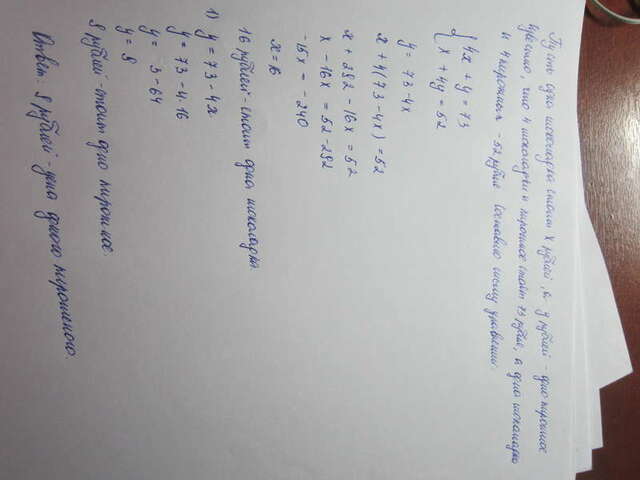 Пусть одна шоколадка стоит x рублей, а y рублей - одно пирожное
известно, что 4 шоколадки и пирожное стоят 73 рубля, а одна шоколадка
и 4 пирожных - 52 рубля. Составлю систему уравнений.
{4x + y = 73
x + 4y = 52
y = 73-4x
x + 4(73-4x) = 52
x + 292 - 16x = 52
x - 16x = 52-292
-15x = -240
x = 16
16 рублей - стоит одна шоколадка.
1) y = 73 - 4x
y = 73 - 4·16
y = 73 - 64
y = 9
9 рублей - стоит одно пирожное.
Ответ: 9 рублей - цена одного пирожного.